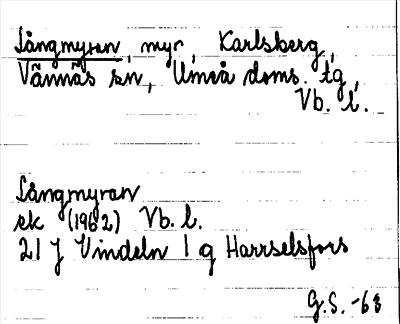 Långmyran, myr, Karlsberg,
Vännäs sn, Umeå doms. tg,
Vb. l.
Långmyran
ek (1962) Vb. l.
21 J Vindeln 1 g Harrselsfors
G.S. -68